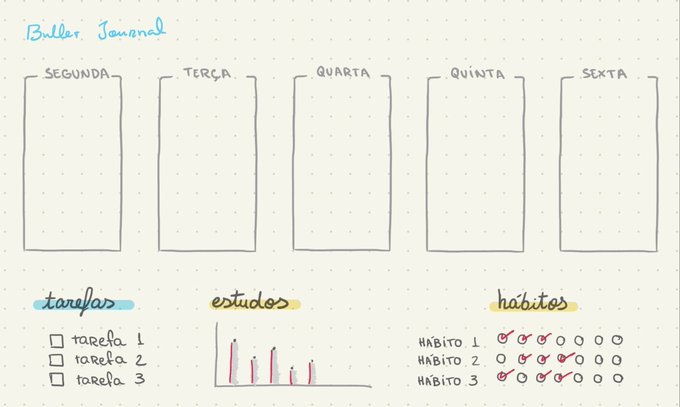 Bullet Journal
SEGUNDA
TERÇA
QUARTA
QUINTA
SEXTA
tarefas
tarefa 1
tarefa 2
tarefa 3
estudos
hábitos
HÁBITO 1
HÁBITO 2
HÁBITO 3